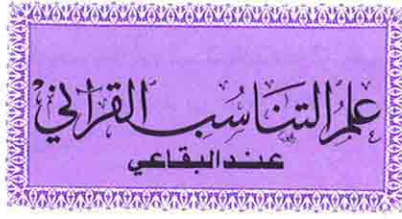 علم التناسب القرآني
عند البقاعي